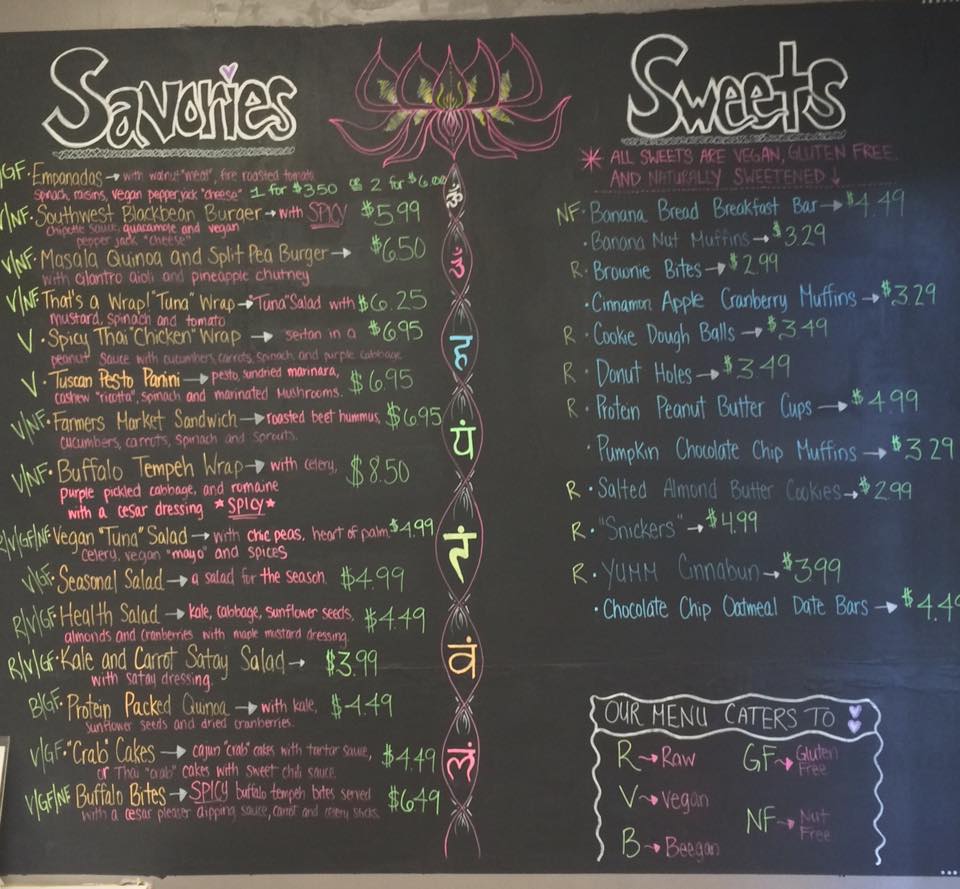 Savories
GF· Empanadas → with walnut "meat", fire roasted tomato,
spinach, raisins, vegan pepperjack "cheese" 1 for $3.50 or 2 for $6.00
V/NF· Southwest Blackbean Burger → with SPICY $5.99
chipotle sauce, guacamole and vegan
pepper jack "cheese"
V/NF· Masala Quinoa and Split Pea Burger → $6.50
with cilantro aioli and pineapple chutney
V/NF· That's a Wrap! "Tuna" Wrap → "Tuna" Salad with $6.25
mustard, spinach and tomato
V· Spicy Thai "Chicken" Wrap → seitan in a $6.95
peanut sauce with cucumbers, carrots, spinach, and purple cabbage
V· Tuscan Pesto Panini → pesto, sundried marinara, $6.95
cashew "ricotta", spinach and marinated mushrooms.
V/NF· Farmers Market Sandwich → roasted beet hummus, $6.95
cucumbers, carrots, spinach and sprouts.
V/NF· Buffalo Tempeh Wrap → with celery, $8.50
purple pickled cabbage, and romaine
with a cesar dressing *SPICY*
R/V/GF/NF· Vegan "Tuna" Salad → with chic peas, heart of palm, $4.99
celery, vegan "mayo" and spices
V/GF· Seasonal Salad → a salad for the season. $4.99
R/V/GF· Health Salad → kale, cabbage, sunflower seeds, $4.49
almonds and cranberries with maple mustard dressing.
R/V/GF· Kale and Carrot Satay Salad → $3.99
with satay dressing.
B/GF· Protein Packed Quinoa → with kale, $4.49
sunflower seeds and dried cranberries.
V/GF· "Crab" Cakes → cajun "crab" cakes with tartar sauce, $4.49
or Thai "crab" cakes with sweet chili sauce.
V/GF/NF Buffalo Bites → SPICY buffalo tempeh bites served $6.49
with a cesar pleaser dipping sauce, carrot and celery sticks.
ॐ
ॐ
हं
यं
रं
वं
लं
Sweets
* ALL SWEETS ARE VEGAN, GLUTEN FREE
AND NATURALLY SWEETENED ↓
NF· Banana Bread Breakfast Bar → $4.49
· Banana Nut Muffins → $3.29
R· Brownie Bites → $2.99
· Cinnamon Apple Cranberry Muffins → $3.29
R· Cookie Dough Balls → $3.49
R· Donut Holes → $3.49
R· Protein Peanut Butter Cups → $4.99
· Pumpkin Chocolate Chip Muffins → $3.29
R· Salted Almond Butter Cookies → $2.99
R· "Snickers" → $4.99
R· YUMM Cinnabun → $3.99
· Chocolate Chip Oatmeal Date Bars → $4.4
OUR MENU CATERS TO
R → Raw
V → Vegan
B → Beegan
GF → Gluten Free
NF → Nut Free